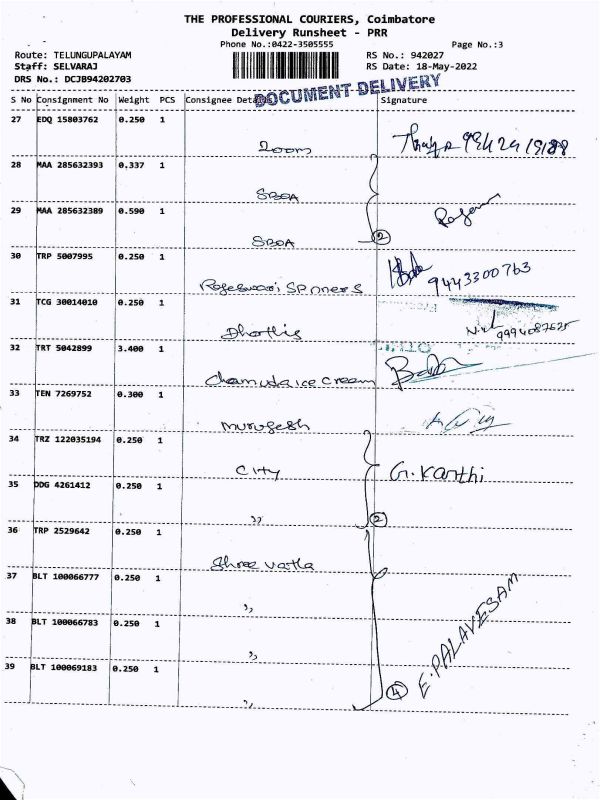 THE PROFESSIONAL COURIERS, Coimbatore
Delivery Runsheet - PRR
Phone No.:0422-3505555 Page No.:3
Route: TELUNGUPALAYAM RS No.: 942027
Staff: SELVARAJ RS Date: 18-May-2022
DRS No.: DCJB94202703
DOCUMENT DELIVERY
S No Consignment No Weight PCS Consignee Details Signature
27 EDQ 15803762 0.250 1
Zoom
28 MAA 285632393 0.337 1
SBOA
29 MAA 285632389 0.590 1
SBOA 2
30 TRP 5007995 0.250 1
Rajeswari Spinners 9443300763
31 TCG 30014010 0.250 1
32 TRT 5042899 3.400 1
Chamuda ice cream
33 TEN 7269752 0.300 1
Murugesh
34 TRZ 122035194 0.250 1
City G. Karthi
35 DDG 4261412 0.250 1
" 2
36 TRP 2529642 0.250 1
Shree vatsa
37 BLT 100066777 0.250 1
"
38 BLT 100066783 0.250 1
"
39 BLT 100069183 0.250 1
" 4
E. PALAVESAM